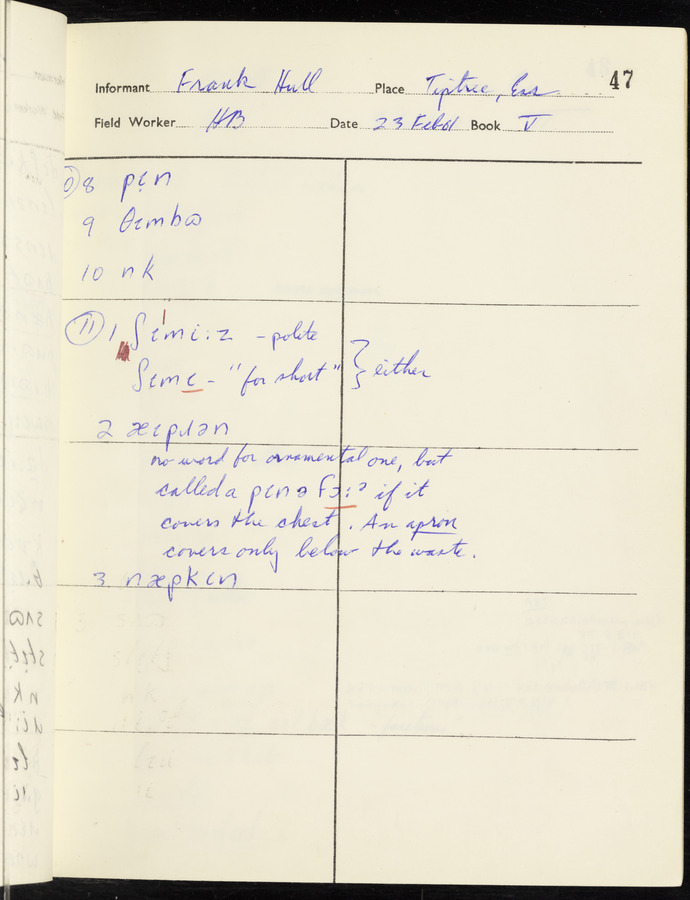 47
Informant Frank Hull Place Tiptree, Ess
Field Worker HB Date 23 Feb 61 Book V
8 pɛn
9 θɪmbɷ
10 nk
11 1 ʃɪmiːz – polite
ʃɪmɪ – "for short" } either
2 æɪpɹən
no word for ornamental one, but
called a pɪnəfɔːʔ if it
covers the chest. An apron
covers only below the waste.
3 næpkɪn